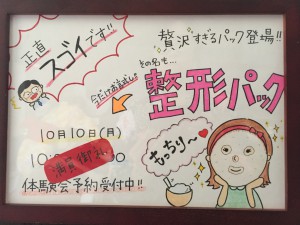 正直
スゴイです!!
贅沢すぎるパック登場!!
その名も…
今だけお試し!!
整形パック
10月10日(月)
満員御礼
もっちり～
体験会予約受付中!!